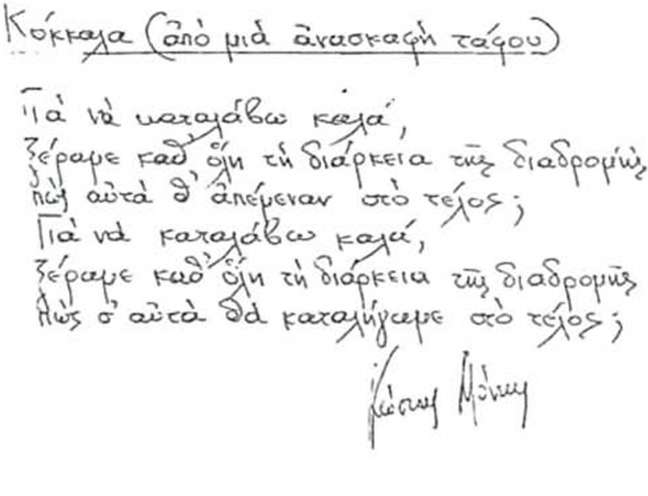 Κόκκαλα (ἀπὸ μιὰ ἀνασκαφὴ τάφου)
Γιὰ νὰ καταλάβω καλά,
ξέραμε καθ' ὅλη τὴ διάρκεια τῆς διαδρομῆς
πὼς αὐτὰ θ' ἀπέμεναν στὸ τέλος;
Γιὰ νὰ καταλάβω καλά,
ξέραμε καθ' ὅλη τὴ διάρκεια τῆς διαδρομῆς
πὼς σ' αὐτὰ θὰ καταλήγαμε στὸ τέλος;